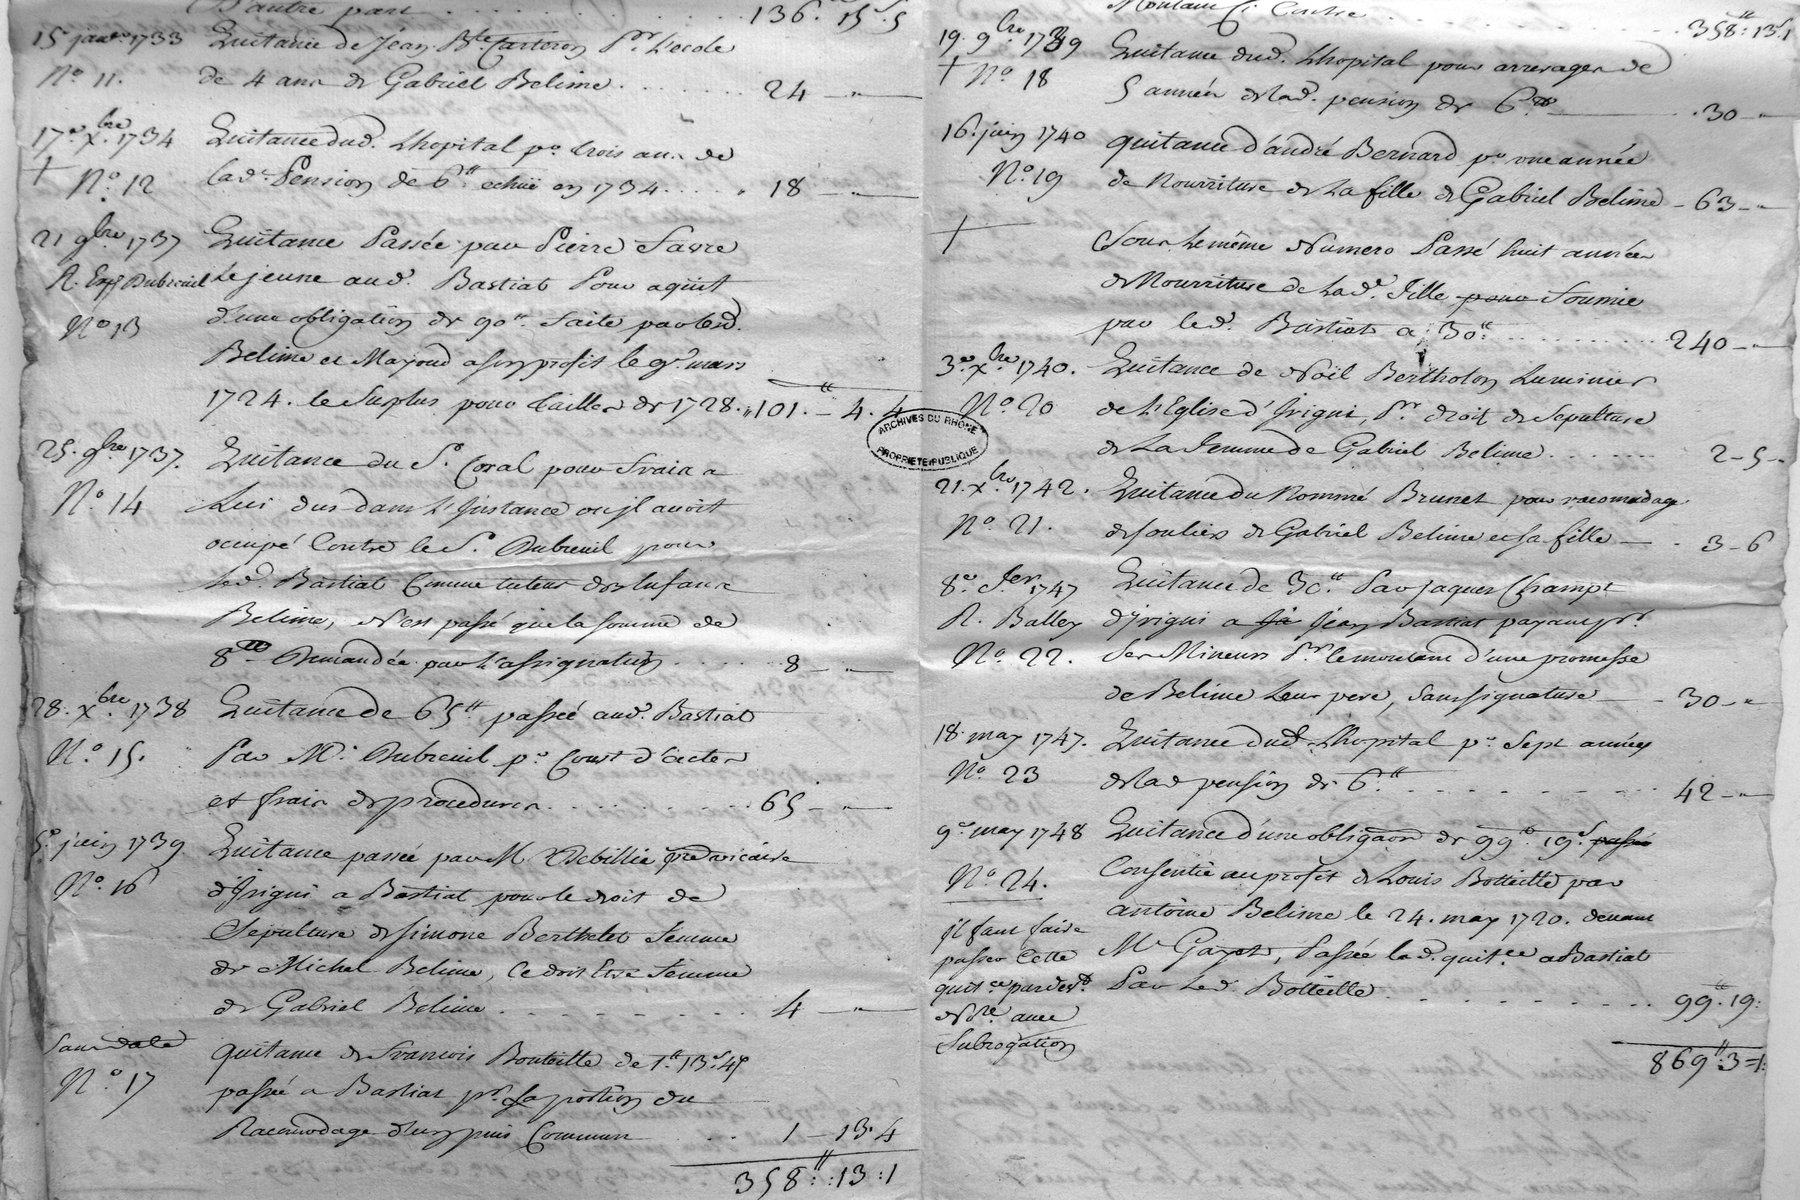 D'autre part . . . 136.# 15.s 5
15e janv. 1733 Quitance de Jean Bte. Carteron Pr. L'ecole
No. 11. de 4 ans de Gabriel Belime . . . . . . 24 — „
17e xbre. 1734 Quitance dud. Lhopital po. trois ans de
+ No. 12 lade. Pension de 6# echüe en 1734 . . . . 18 — „
21 9bre 1737 Quitance Passée par Pierre Favre
R. Exp. Dubreuil Le jeune aud. Bastiat Pour aquit
No. 13 d'une obligation de 90#. faite par lesd.
Belime et Mayoud a son profit le 9e. mars
1724. le Surplus pour tailles de 1728. „ 101.# — 4. 4
25. 9bre 1737. Quitance du Sr. Coral pour fraix a
No. 14 Lui dus dans L'Instance ou jl avoit
occupé Contre le Sr. Dubreuil pour
led. Bastiat Comme tuteur des Enfans
Belime, N'est passé que la somme de
8# Demandée par L'assignation . . . . . 8 — „
28. xbre. 1738 Quitance de 65# passée aud. Bastiat
No. 15. Par Me. Dubreuil po. Court d'actes
et fraix de procedures . . . . . . . . 65 — „
5e. juin 1739 Quitance passée par M. Debillie vicaire
No. 16 d'Irigni a Bastiat pour le droit de
Sepulture de Simone Berthelet femme
de Michel Belime, Ce doit Etre femme
de Gabriel Belime . . . . . . . . . . 4 — „
Sans date quitance de Francois Bouteille de 1# 13s. 4d
No. 17 passée a Bastiat pr. Sa portion du
Racomodage d'un puis Commun . . . 1 — 13. 4
358#: 13: 1
Montant Ci Contre . . . . . . 358#: 13s. 1
19. 9bre 1739 Quitance dud. Lhopital pour arrerages de
+ No. 18 5 années de lad. pension de 6# . 30 — „
16. juin 1740 quitance d'andré Bernard po. une année
No. 19 de Nourriture de La fille de Gabriel Belime — 63 — „
+ Sous Le même Numero Passé huit années
de Nourriture de Lade. fille pour Fournie
par led. Bastiat a 30# . . . . . . . . . 240 — „
3e. xbre. 1740. Quitance de Noël Bertholon Luminier
No. 20 de L'Eglise d'Irigni, Pr. droit de Sepulture
de La femme de Gabriel Belime . . . . . . 2 — 5 — „
21. xbre 1742. Quitance du Nommé Brunet pour racomodage
No. 21. de souliers de Gabriel Belime et sa fille — . 3 — 6
8e. 1747 Quitance de 30# Par Jaques Champt
R. Balley d'Irigni a Jean Bastiat payant pr.
No. 22. Ses Mineurs Pr. le montant d'une promesse
de Belime Leur pere, sans signature — . 30 — „
18. may 1747. Quitance dud. Lhopital po. Sept années
No. 23 de lad pension de 6# . . . . . . . . . 42 — „
9e. may 1748 Quitance d'une obligaon de 99# 19s. passée
No. 24. Consentie au profit de Louis Botteille par
antoine Belime le 24. may 1720. devant
jl faut faire
passer Cette Me. Gayet, Passée lad. quitce a Bastiat
quitce par devt. Par Led. Botteille . . . . . . . . . 99#. 19:
Nore. avec
Subrogation
869#: 3 = 1:
ARCHIVES DU RHONE
PROPRIETE PUBLIQUE